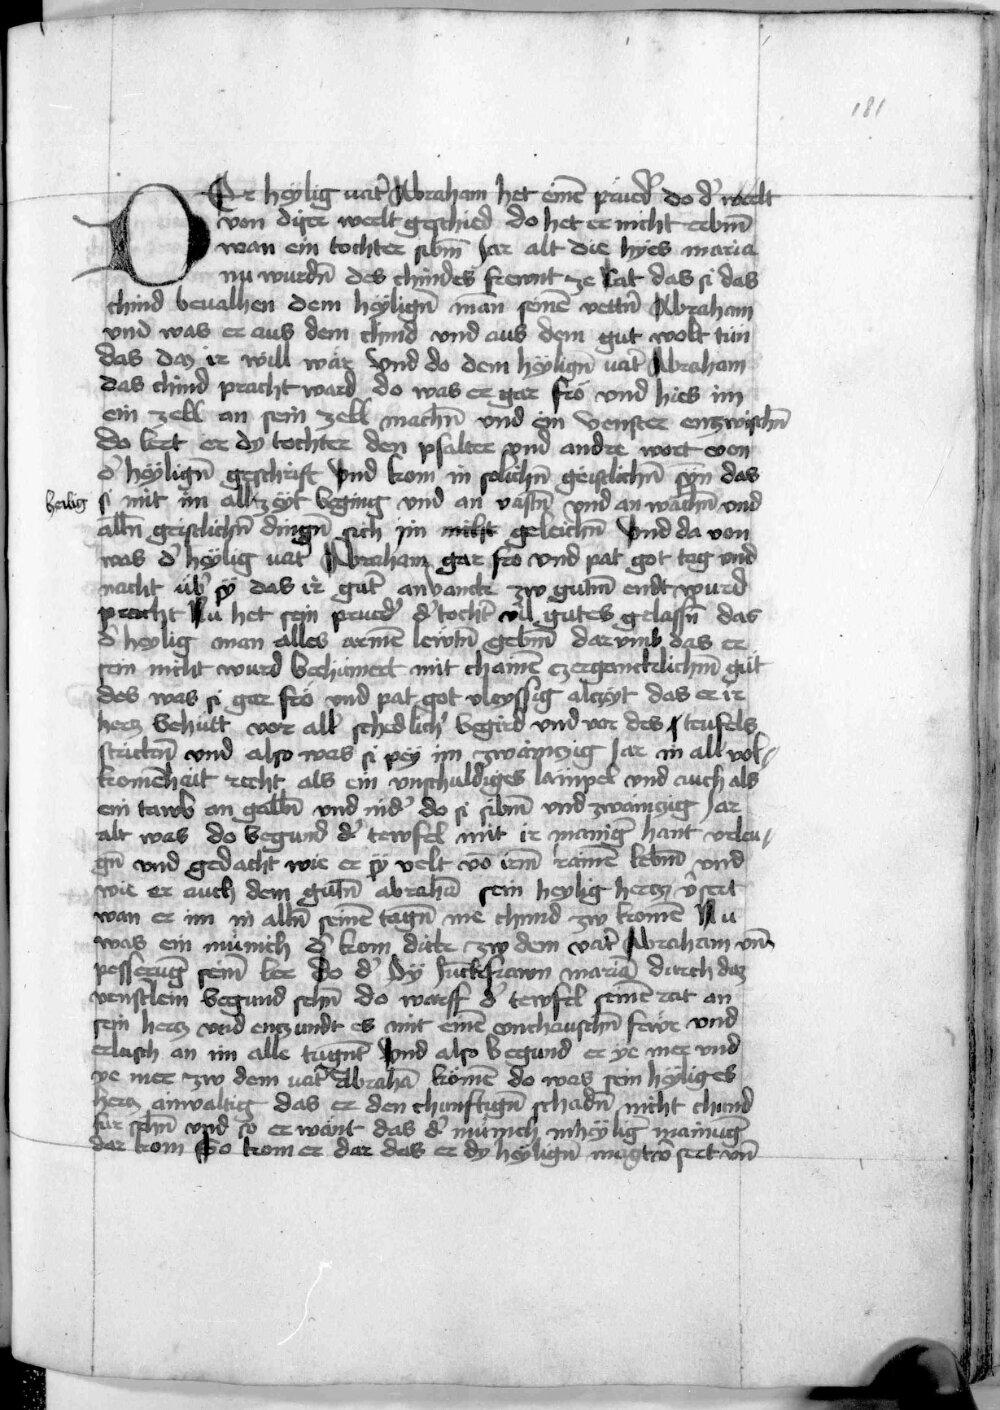 181
DEr heylig vat͛ Abraham het einē prued͛ do d͛ werlt
von diser werlt geschied do het er nicht erbm̄
wan ein tochter sibm̄ Jar alt die hyes maria
nu wurdn̄ des chindes frewnt ze Rat das si das
chind beualhen dem heylign̄ man seinē vettn̄ Abraham
vnd was er aus dem chind vnd aus dem gut wolt tún
das daz ir will wár Vnd do dem heylign̄ vat͛ Abraham
das chind pracht ward do was er gar fro vnd hies im
ein zell an sein zell machn̄ vnd ein venster enzwischn̄
do lert er dy tochter den psalter vnd andre wort von
d͛ heylign̄ geschrift Vnd kom in solichn̄ geistlichn̄ syn das
heilig
si mit im all zeyt beging vnd an vastn̄ vnd an wachn̄ vnd
alln̄ geistlichn̄ dingn̄ sich im nicht geleichn̄ Vnd da von
was d͛ heylig vat͛ Abraham gar fro vnd pat got tag vnd
nacht úb͛ sy das ir gut͛ anvanck zw gutm̄ endt wurd
pracht Nu het sein prued͛ d͛ tocht͛ vil gutes gelassn̄ das
d͛ heylig man alles armē lewtn̄ gebm̄ darvmb das er
sein nicht wurd bechúmert mit chainē czergancklichm̄ gút
des was si gar fro vnd pat got vleyssig alczyt das er ir
hercz behútt vor all͛ schedlich͛ begird vnd vor des teufels
strickn̄ vnd also was si pey im zwainczig Jar in all vol
komēhait recht als ein vnschuldiges lámpel vnd auch als
ein tawb an galln̄ vnd nid͛ do si sibm̄ vnd zwainczig Jar
alt was do begund d͛ tewfel mit ir manig͛ hant vrleu
gn̄ vnd gedacht wie er sy velt vō irm̄ rainē lebm̄ vnd
wie er auch dem gutn̄ abrahā sein heylig hercz v͛sert
wan er im in alln̄ seinē tagn̄ nie chund zw komē Nu
was ein múnich d͛ kom dickr zw dem vat͛ Abraham vm̄
pesserūg seim̄ ler Do d͛ dy Junckfrawn mariā durch daz
venstlein begund sehn̄ do warff d͛ tewfel seinē rat an
sein hercz vnd enczundt es mit einē vnchauschn̄ fewr vnd
erlasch an im alle tugnt͛ Vnd also begund er ye mer vnd
ye mer zw dem vat͛ Abrahā komē do was sein heyliges
hercz anwaltig das er den chunftign̄ schadn̄ nicht chund
fúr sehn̄ vnd so er wánt das d͛ múnich in heylig͛ mainūg
dar kom So kom er dar das er dy heylign̄ magt v͛sert vn̄